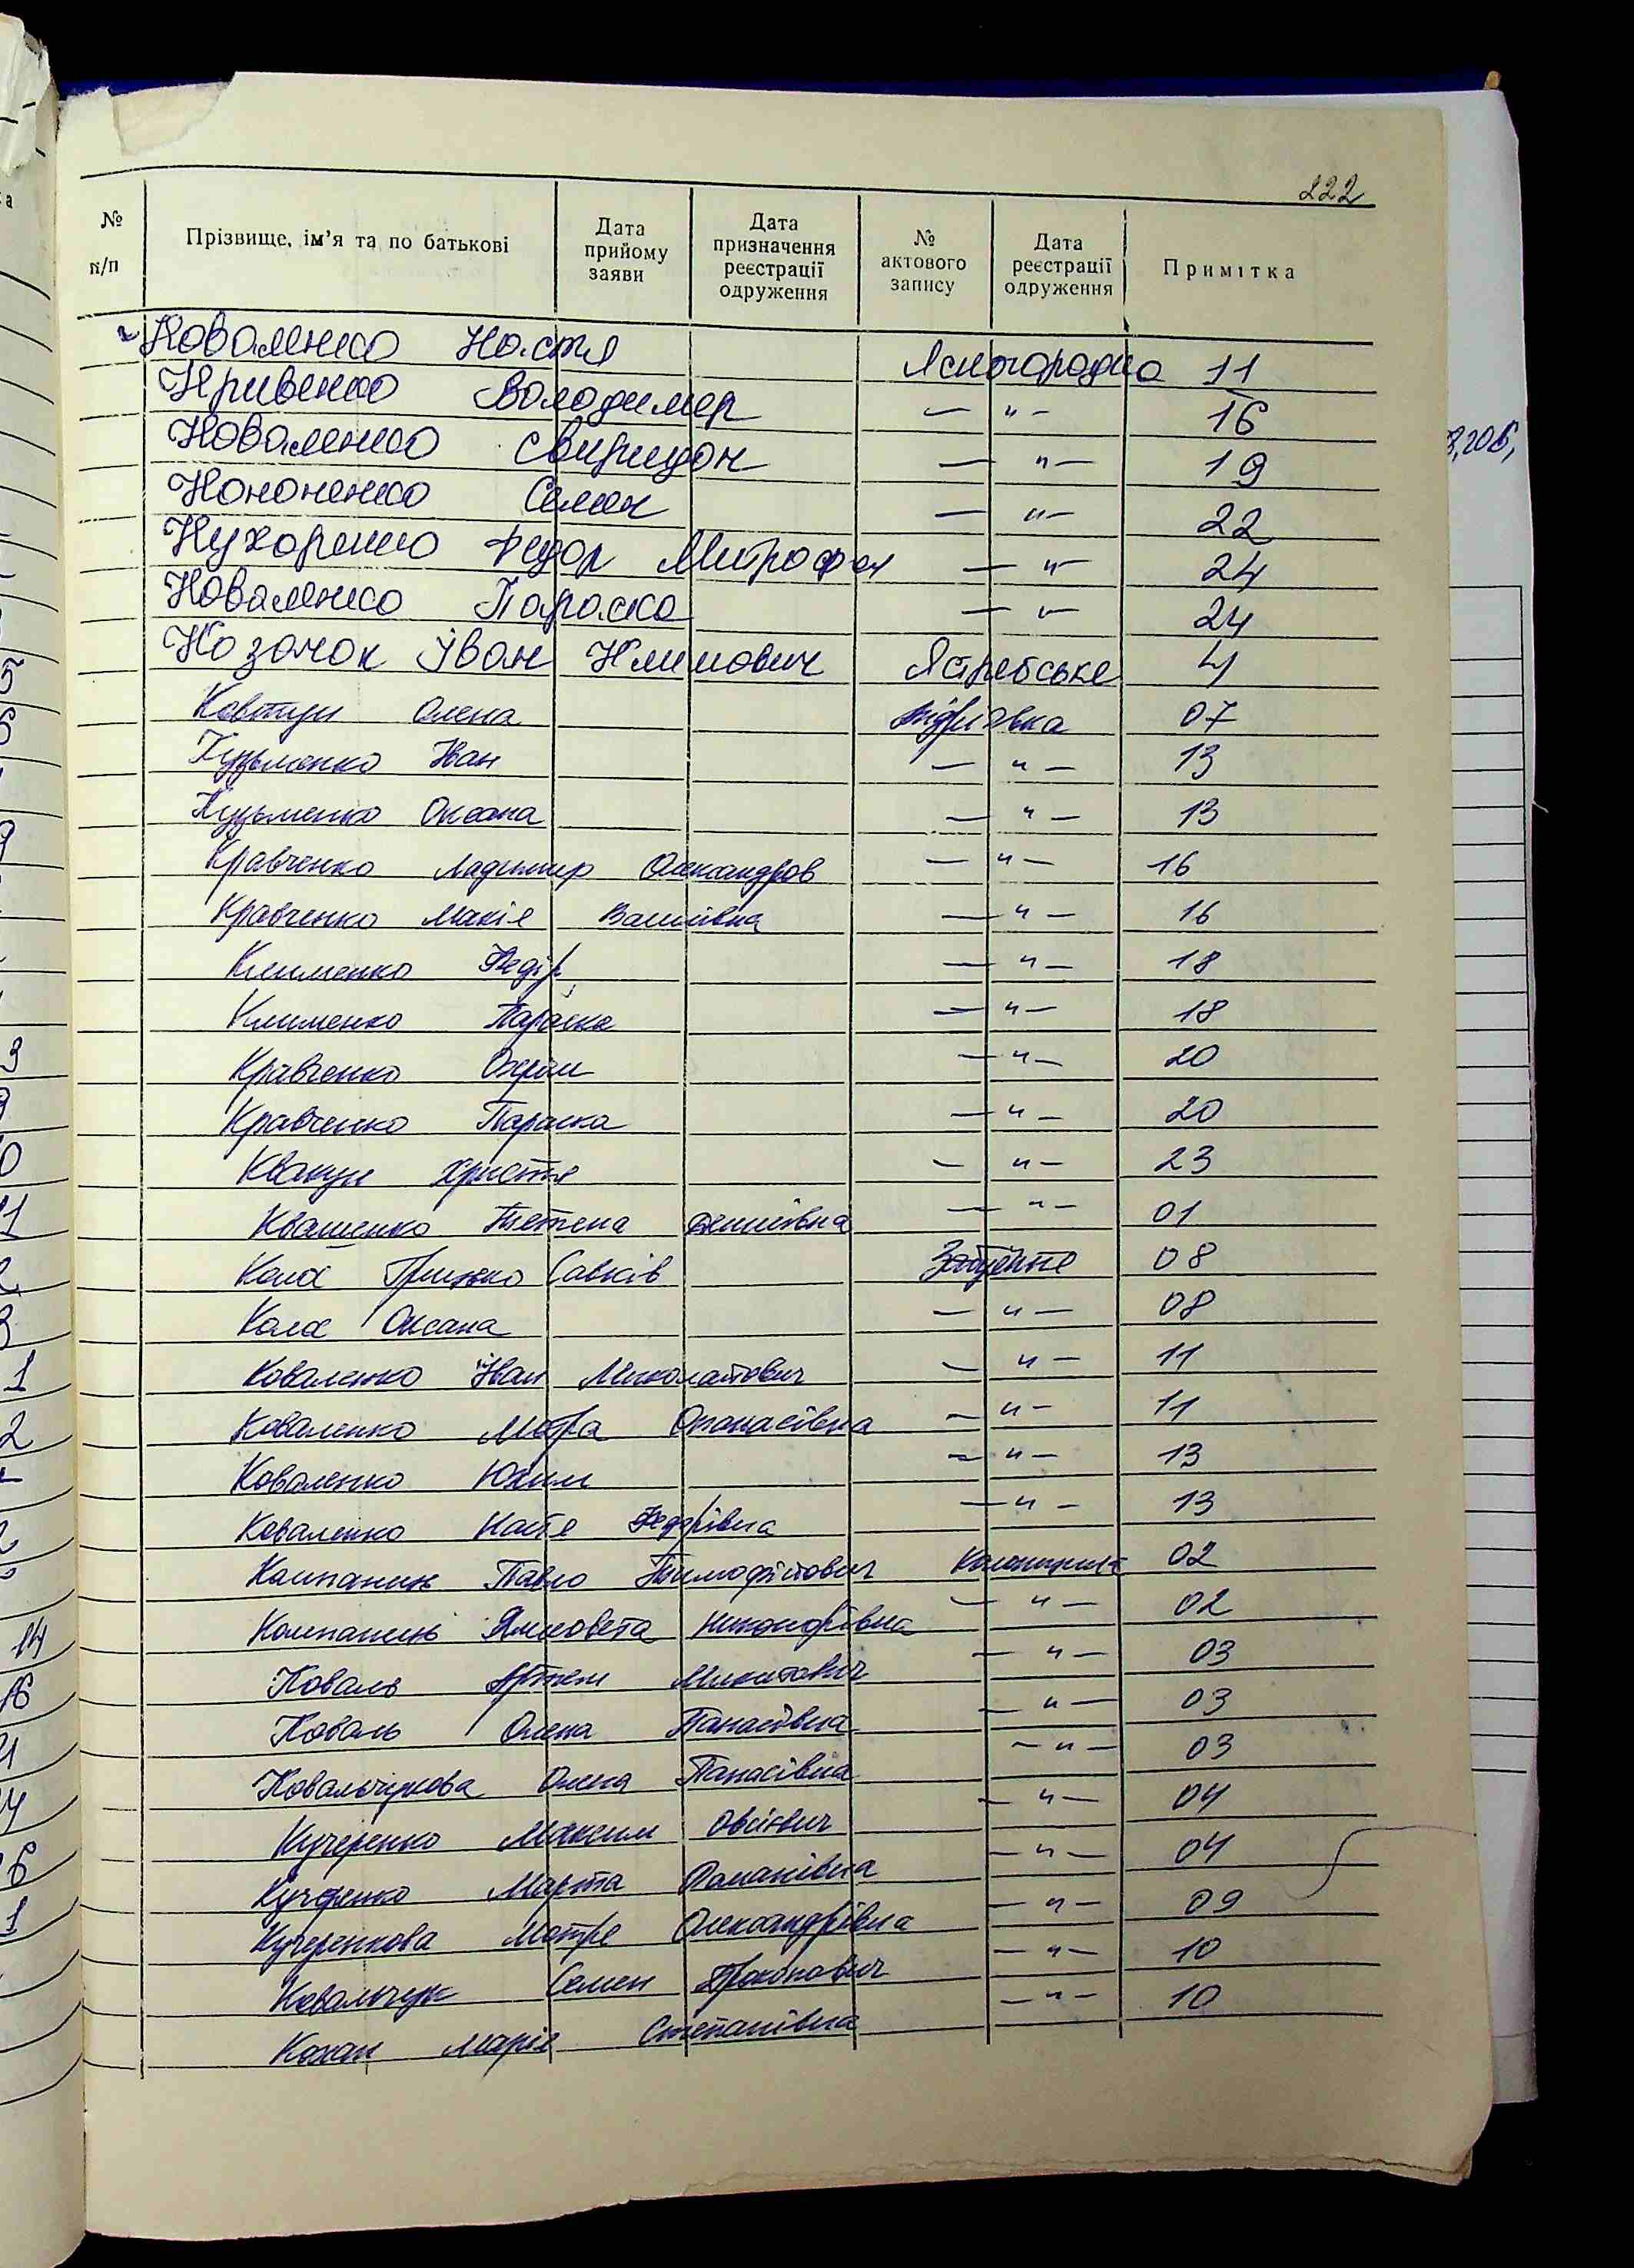 222
№ п/п Прізвище, ім'я та по батькові Дата прийому заяви Дата призначення реєстрації одруження № актового запису Дата реєстрації одруження Примітка
Коваленко Настя Ясногородка 11
Кривенко Володимер — " — 16
Коваленко Свиридон — " — 19
Кононенко Семен — " — 22
Кухоренко Федор Митрофан — " — 24
Коваленко Параска — " — 24
Козачок Іван Климович Ястребське 4
Ковтун Олена 07
Кузьменко Іван — " — 13
Кузьменко Оксана — " — 13
Кравченко Ладимир Олександров — " — 16
Кравченко Марія Василівна — " — 16
Клименко Федір — " — 18
Клименко Параска — " — 18
Кравченко Охрім — " — 20
Кравченко Параска — " — 20
Христя — " — 23
Квашенко Тетяна — " — 01
Грицько Савків 08
Оксана — " — 08
Коваленко Іван Миколайович — " — 11
Коваленко Мотра Опанасівна — " — 11
Коваленко Юхим — " — 13
Коваленко Настя Федорівна — " — 13
Компанець Павло Тимофійович 02
Компанець Ялисовета Никонорівна — " — 02
Коваль Артем Микитович — " — 03
Коваль Олена Панасівна — " — 03
Ковальчукова Олена Панасівна — " — 03
Кучеренко Максим Овсієвич — " — 04
Кучеренко Марта Романівна — " — 04
Кучеренкова Мотря Олександрівна — " — 09
Ковальчук Семен Прокопович — " — 10
Кохан Марія Степанівна — " — 10